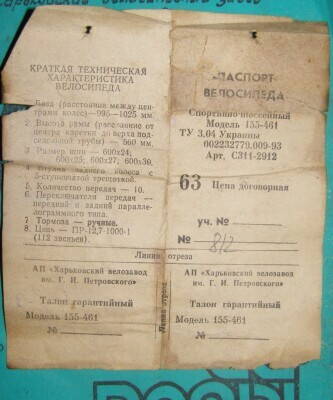 КРАТКАЯ ТЕХНИЧЕСКАЯ
ХАРАКТЕРИСТИКА
ВЕЛОСИПЕДА
База (расстояние между цен-
трами колес)—995—1025 мм.
2. Высота рамы (расстояние от
центра каретки до верха под-
седельной трубы) — 560 мм.
3 Размер шин — 600х24;
600х25; 600х27; 600х30.
Втулка заднего колеса с
5-ступенчатой трещоткой.
5. Количество передач — 10.
6. Переключатели передач —
передний и задний паралле-
лограммного типа.
7 Тормоза — ручные.
8. Цепь — ПР-12,7-1000-1
(112 звеньев).
ПАСПОРТ
ВЕЛОСИПЕДА
Спортивно-шоссейный
Модель 155-461
ТУ 3.04 Украины
002232779.009-93
Арт. С311-2912
63 Цена договорная
уч. №
№ 812
Линия отреза
АП «Харьковский велозавод
им. Г. И. Петровского»
Талон гарантийный
Модель 155-461
№
Линия отреза
АП «Харьковский велозавод
им. Г. И. Петровского»
Талон гарантийный
Модель 155-461
№